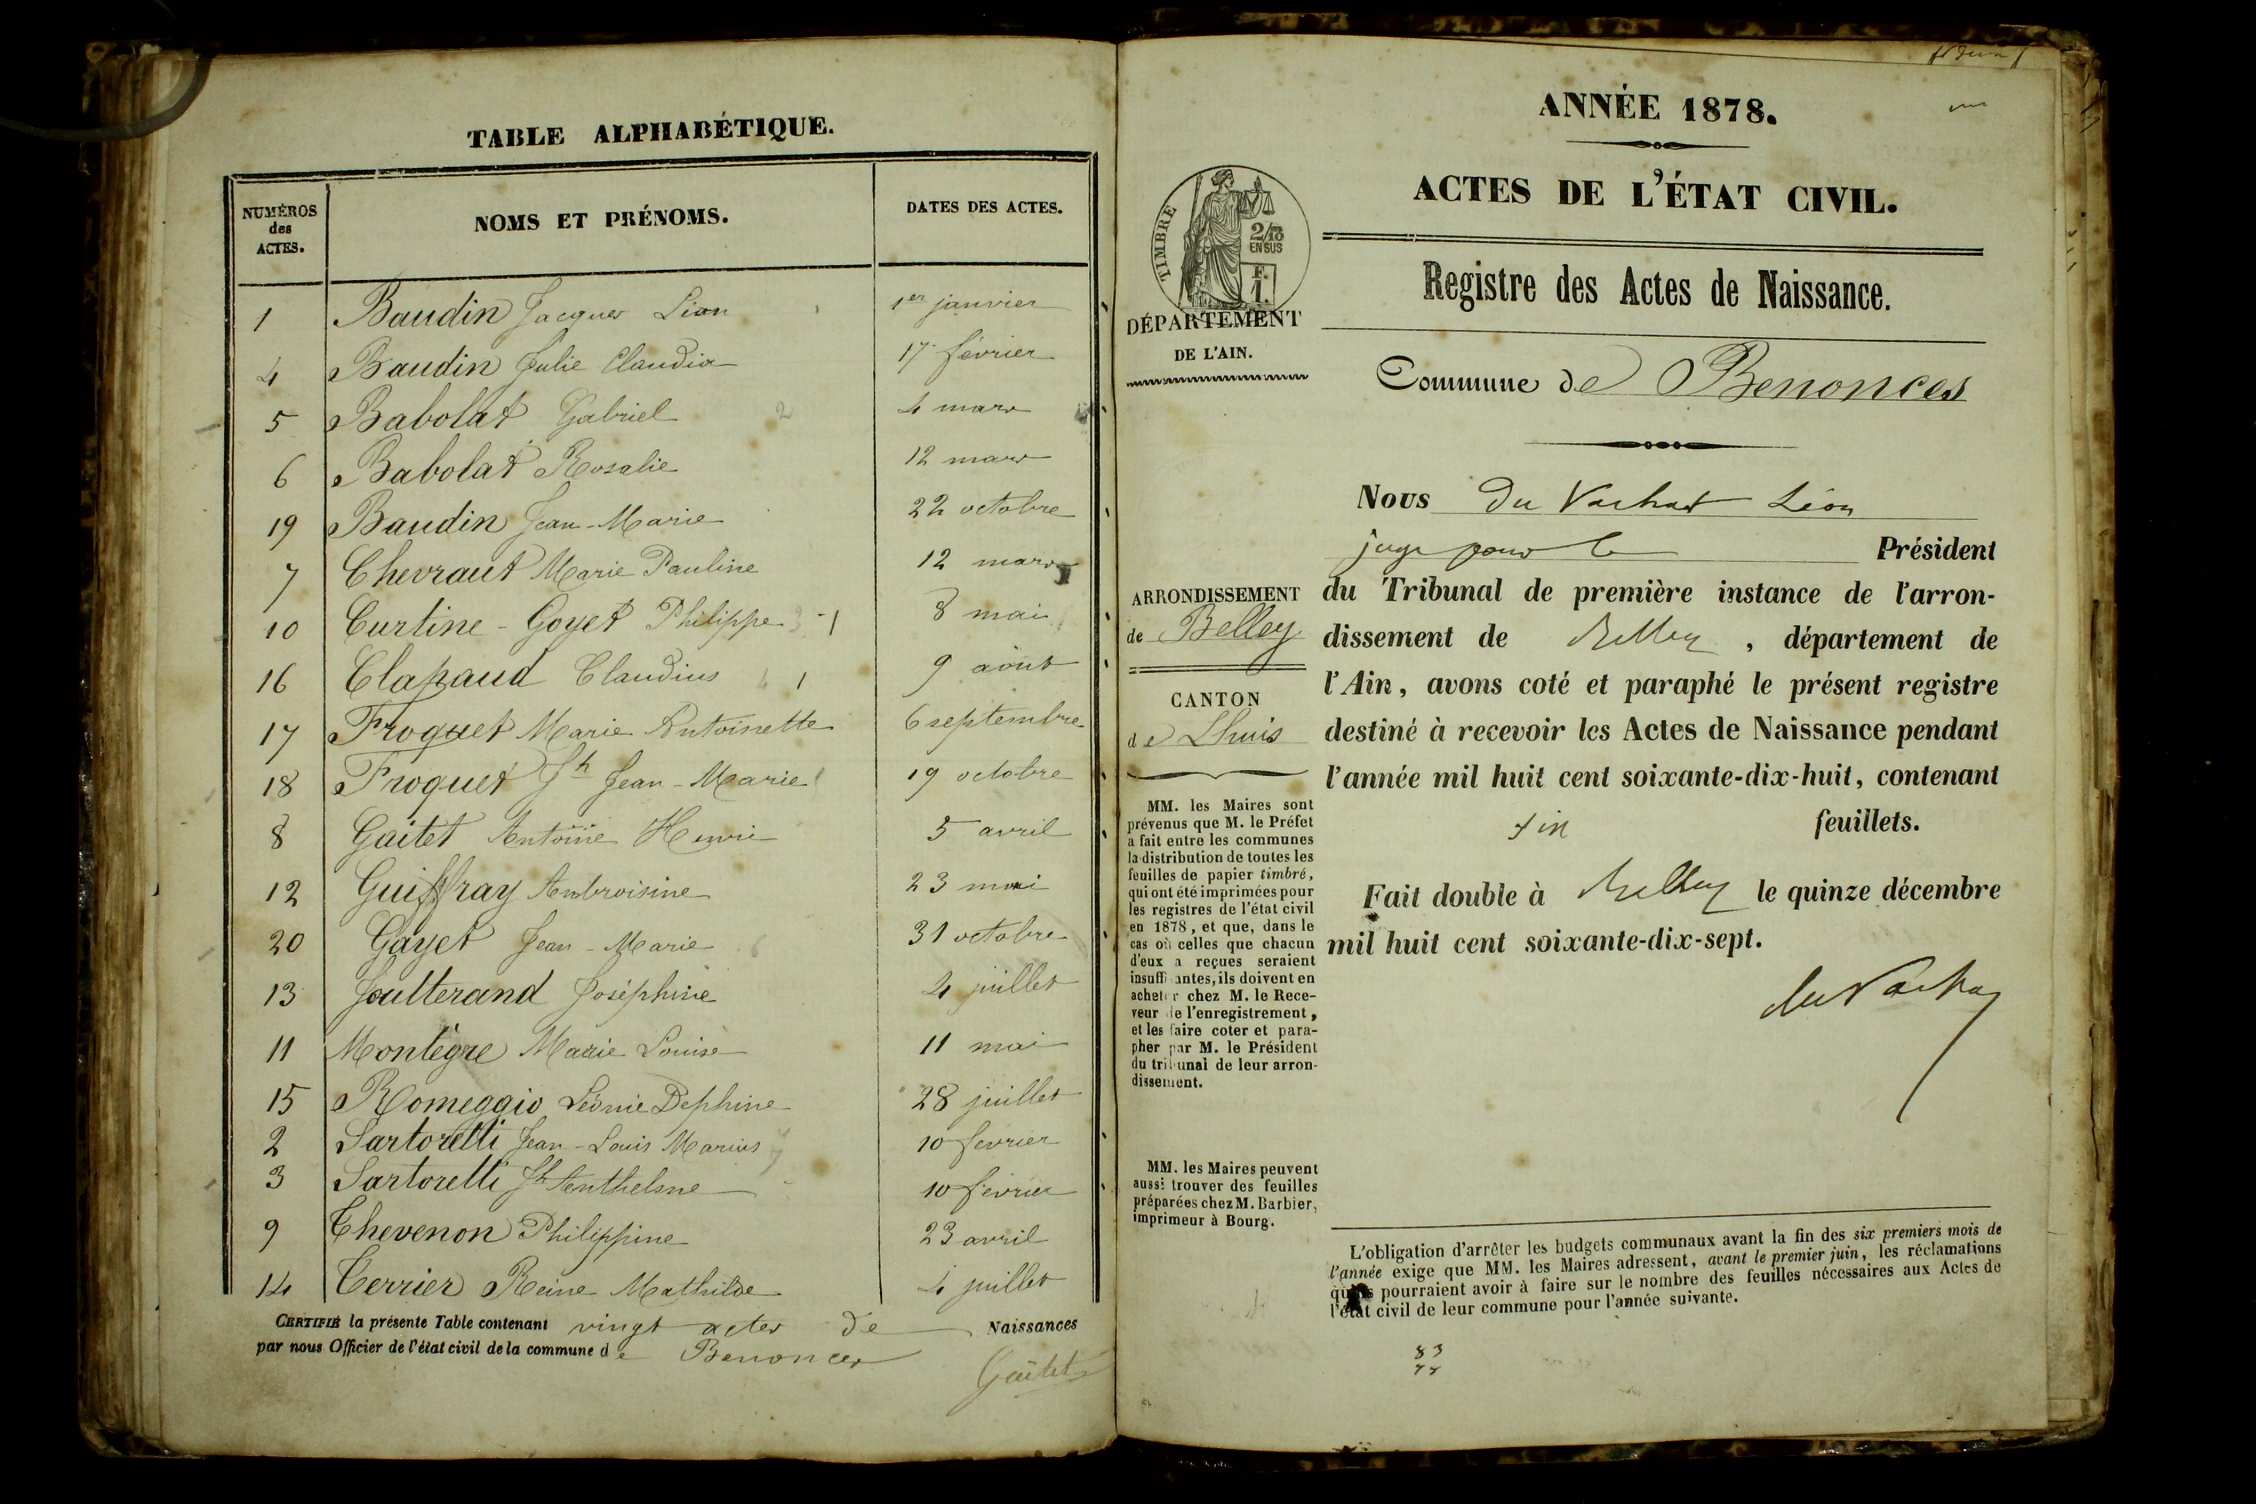 TABLE ALPHABÉTIQUE.
NUMÉROS des ACTES. NOMS ET PRÉNOMS. DATES DES ACTES.
1 Baudin Jacques Léon 1er janvier
4 Baudin Julie Claudia 17 février
5 Babolat Gabriel 2 4 mars
6 Babolat Rosalie 12 mars
19 Baudin Jean-Marie 22 octobre
7 Chevraut Marie Pauline 12 mars
10 Curtine-Goyet Philippe 3 8 mai
16 Clapaud Claudius 9 août
17 Froquet Marie Antoinette 6 septembre
18 Froquet Jh Jean-Marie 19 octobre
8 Gaitet Antoine Henri 5 avril
12 Guiffray Ambroisine 23 mai
20 Gayet Jean-Marie 6 31 octobre
13 Joulterand Joséphine 4 juillet
11 Montègre Marie Louise 11 mai
15 Romeggio Léonie Dephine 28 juillet
2 Sartoretti Jean-Louis Marius 10 février
3 Sartoretti Jh Anthelme 10 février
9 Thevenon Philippine 23 avril
14 Terrier Reine Mathilde 4 juillet
CERTIFIÉ la présente Table contenant vingt actes de Naissances
par nous Officier de l'état civil de la commune de Benonces
Gaitet
ANNÉE 1878.
ACTES DE L'ÉTAT CIVIL.
Registre des Actes de Naissance.
TIMBRE
2/10
EN SUS
F.
1.
DÉPARTEMENT
DE L'AIN.
Commune de Benonces
Nous Du Vachat Léon
juge pour le Président
du Tribunal de première instance de l'arron-
dissement de Belley, département de
l'Ain, avons coté et paraphé le présent registre
destiné à recevoir les Actes de Naissance pendant
l'année mil huit cent soixante-dix-huit, contenant
six feuillets.
Fait double à Belley le quinze décembre
mil huit cent soixante-dix-sept.
du Vachat
ARRONDISSEMENT
de Belley
CANTON
de Lhuis
MM. les Maires sont
prévenus que M. le Préfet
a fait entre les communes
la distribution de toutes les
feuilles de papier timbré,
qui ont été imprimées pour
les registres de l'état civil
en 1878, et que, dans le
cas où celles que chacun
d'eux a reçues seraient
insuffisantes, ils doivent en
acheter chez M. le Rece-
veur de l'enregistrement,
et les faire coter et para-
pher par M. le Président
du tribunal de leur arron-
dissement.
MM. les Maires peuvent
aussi trouver des feuilles
préparées chez M. Barbier,
imprimeur à Bourg.
L'obligation d'arrêter les budgets communaux avant la fin des six premiers mois de
l'année exige que MM. les Maires adressent, avant le premier juin, les réclamations
qu'ils pourraient avoir à faire sur le nombre des feuilles nécessaires aux Actes de
l'état civil de leur commune pour l'année suivante.
83